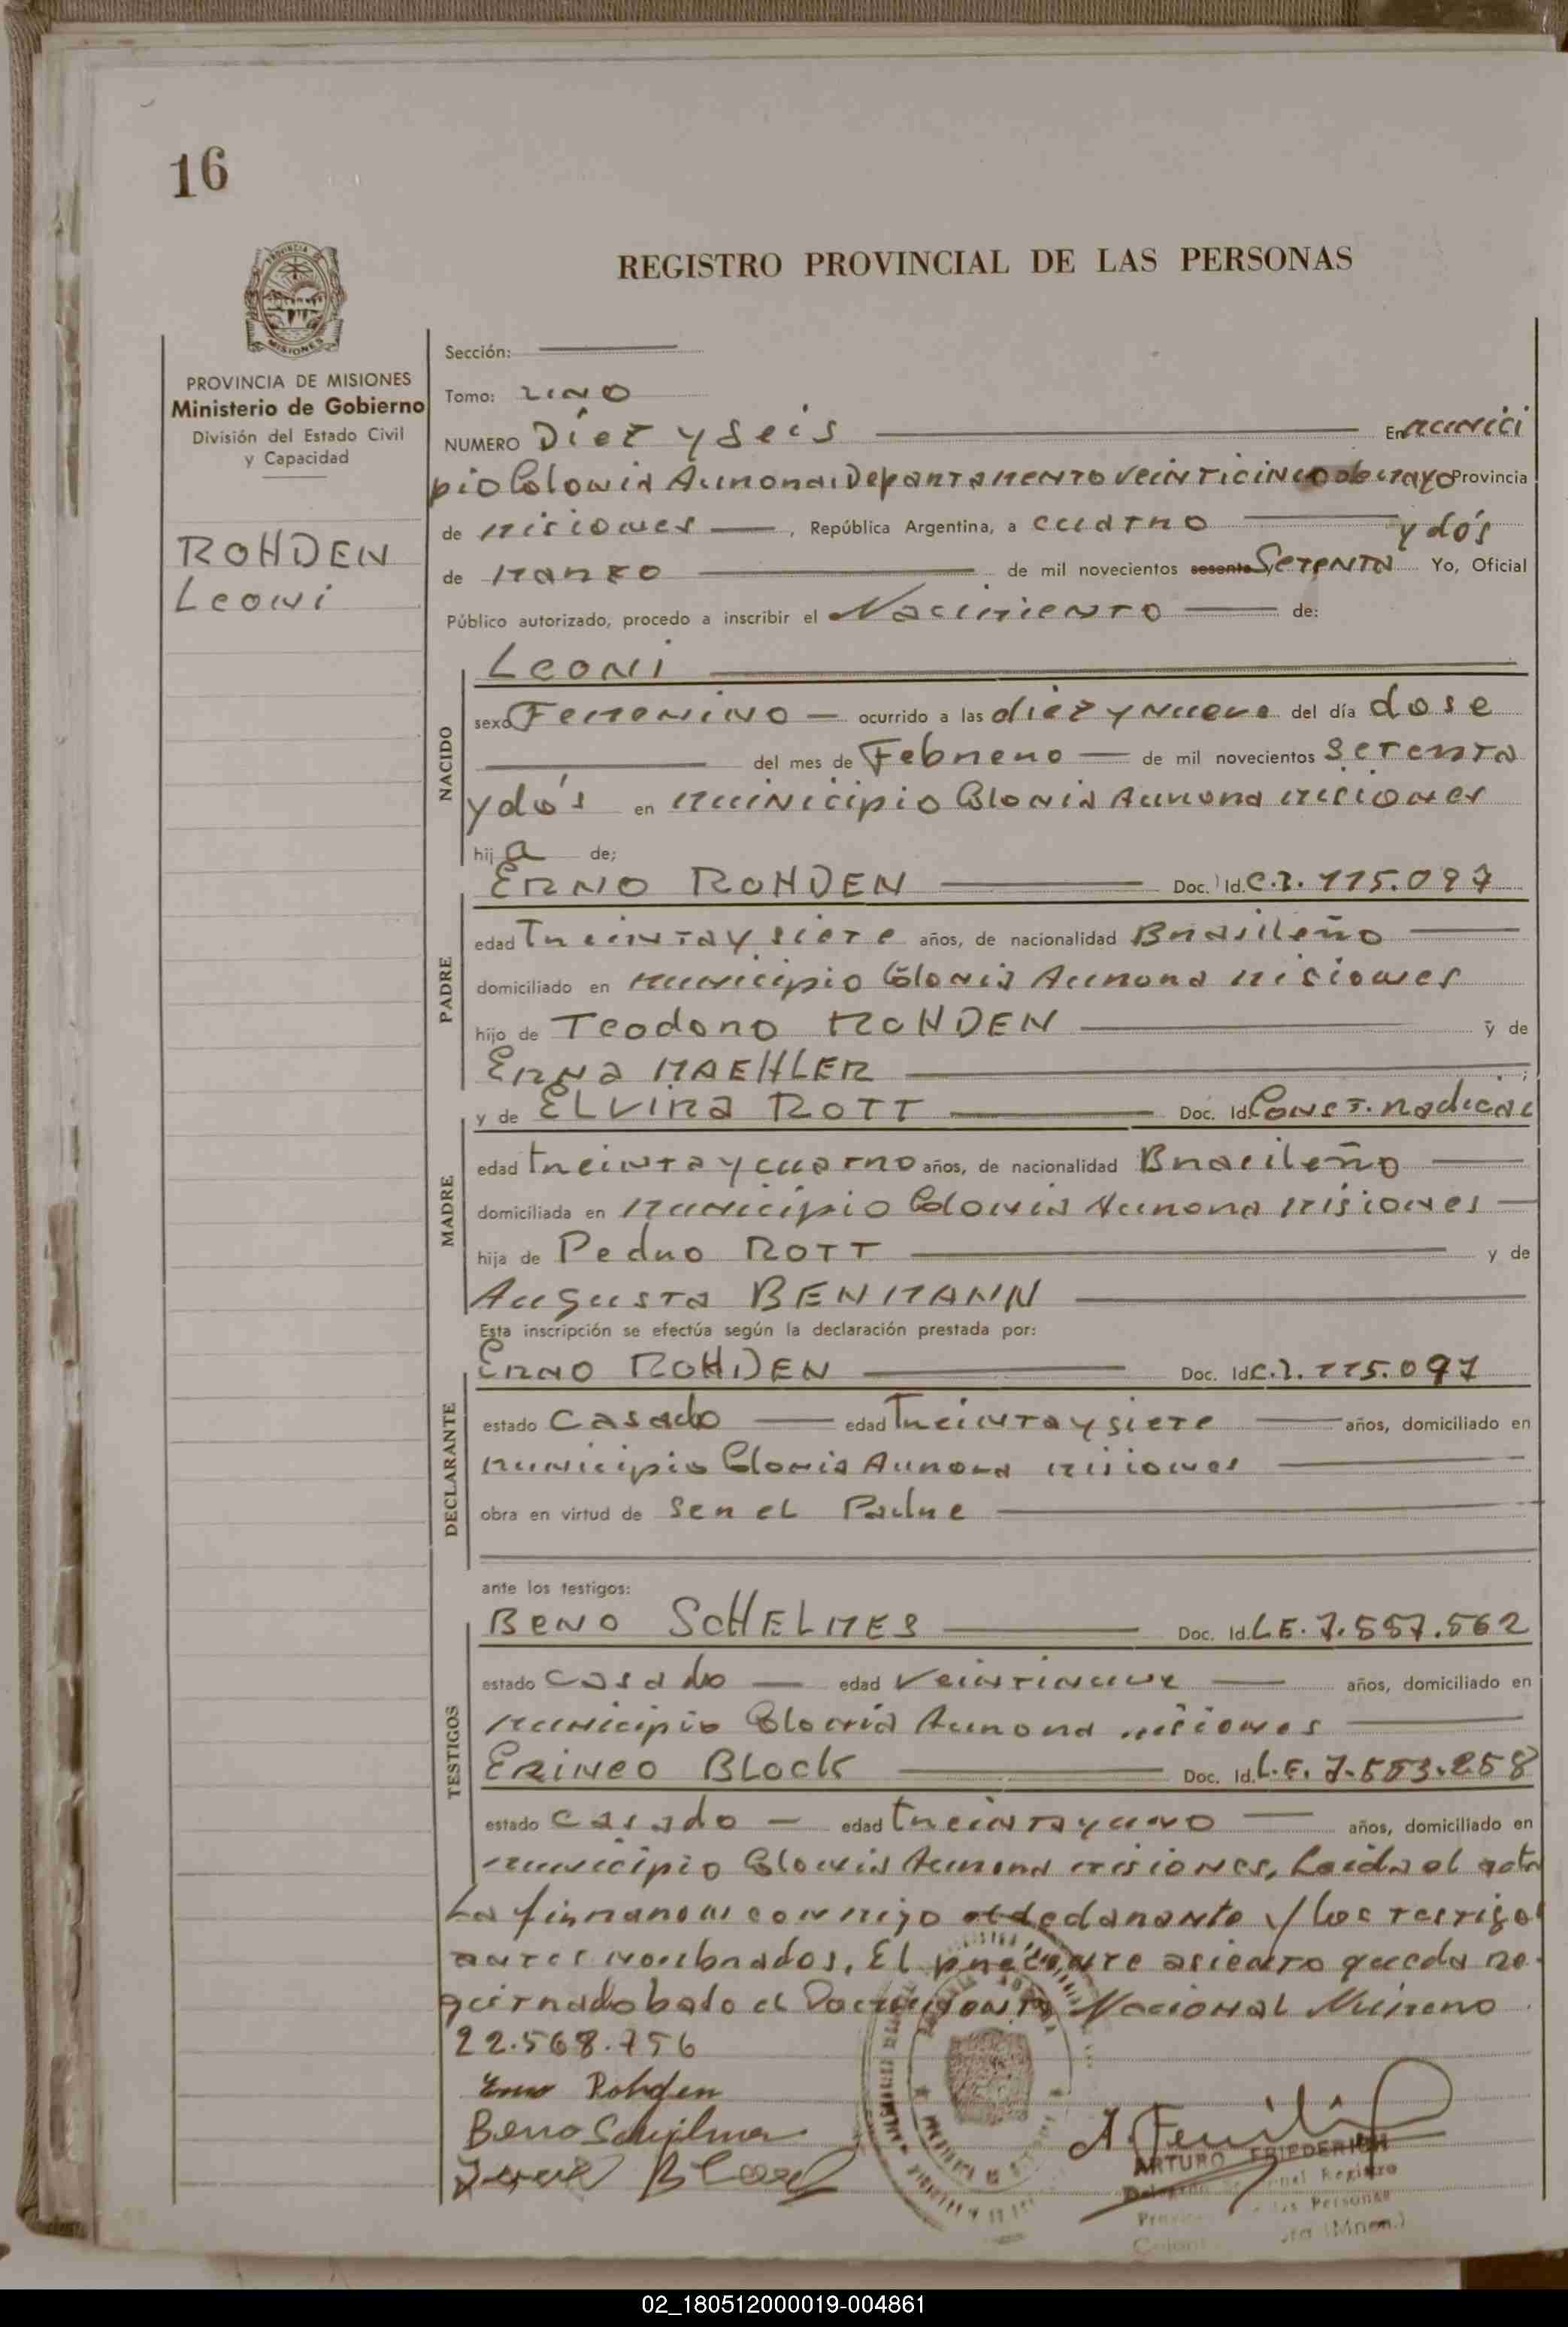 16
REGISTRO PROVINCIAL DE LAS PERSONAS
PROVINCIA
MISIONES
PROVINCIA DE MISIONES
Ministerio de Gobierno
División del Estado Civil
y Capacidad
ROHDEN
Leoni
Sección:
Tomo: UNO
NUMERO Diez y Seis En munici
pio Colonia Aurora, Departamento veinticinco de mayo Provincia
de misiones, República Argentina, a cuatro
y dós
de Marzo de mil novecientos sesenta Setenta Yo, Oficial
Público autorizado, procedo a inscribir el Nacimiento de:
NACIDO
Leoni
sexo Femenino ocurrido a las diez y nueve del día dose
del mes de Febrero de mil novecientos Setenta
y dós en municipio Colonia Aurora misiones
hija de;
PADRE
ERNO ROHDEN Doc. Id. C.I. 115.097
edad Treinta y siete años, de nacionalidad Brasileño
domiciliado en municipio Colonia Aurora misiones
hijo de Teodoro ROHDEN y de
Erna MAEHLER ;
MADRE
y de ELvira ROTT Doc. Id. Const. Radicac
edad treinta y cuatro años, de nacionalidad Brasileño
domiciliada en municipio Colonia Aurora misiones
hija de Pedro ROTT y de
Augusta BENMANN
Esta inscripción se efectúa según la declaración prestada por:
DECLARANTE
Erno ROHDEN Doc. Id. C.I. 115.097
estado casado edad Treinta y siete años, domiciliado en
municipio Colonia Aurora misiones
obra en virtud de ser el Padre
ante los testigos:
TESTIGOS
Beno SCHELMES Doc. Id. L E. 7.557.562
estado casado edad veintinueve años, domiciliado en
municipio Colonia Aurora misiones
Erineo BLOCK Doc. Id. L.E. 7.553.258
estado casado edad treinta y uno años, domiciliado en
municipio Colonia Aurora misiones, Leida el acta
La firmaron conmigo el declarante y los testigos
antes nombrados, El presente asiento queda re
gistrado bajo el Documento Nacional Número
22.568.756
Erno Rohden
Beno
Block
ARTURO FRIEDERICH
Registro
Personas
(Mnes.)
02_180512000019-004861